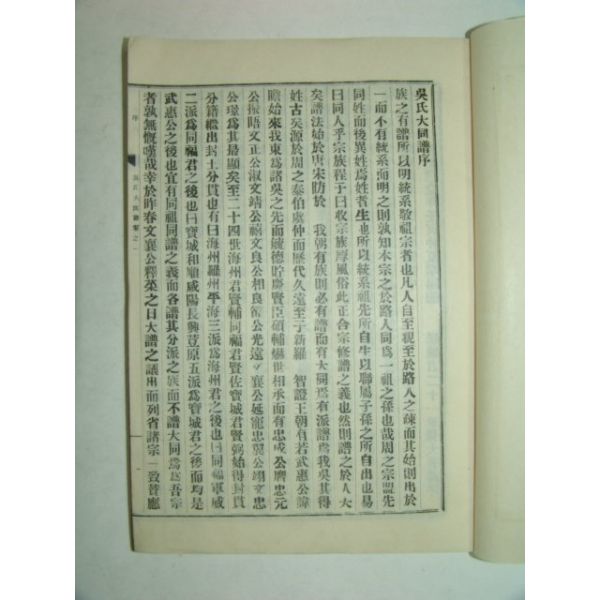 吳氏大同譜序
族之有譜所以明統系敬祖宗者也凡人自至親至於路人之疎而其始則出於
一而不有統系而明之則孰知本宗之於路人同爲一祖之孫也哉周之宗盟先
同姓而後異姓爲姓者生也所以統系祖先所自生以聯屬子孫之所自出也易
曰同人乎宗族程子曰收宗族厚風俗此正合宗修譜之義也然則譜之於人大
矣譜法始於唐宋昉於 我朝有族則必有譜而有大同焉有派譜焉我吳其得
姓古矣源於周之泰伯處仲而歷代久遠至于新羅 智證王朝有若武惠公諱
瞻始來我東爲諸吳之先而毓德貯慶賢臣碩輔燀世相承而有忠成公膺忠元
公振晤文正公淑文靖公禧文良公相良簡公光遠 襄公延寵忠翼公翊 忠
公璟爲其最顯矣至二十四世海州君賢輔同福君賢佐寶城君賢弼始得封貫
分籍繼出封土分貫也有曰海州羅州平海三派爲海州君之後也曰同福軍威
二派爲同福君之後也曰寶城和順咸陽長興荳原五派爲寶城君之後而均是
武惠公之後也宜有同祖同譜之義而各譜其分派之族而不譜大同焉爲吾宗
者孰無慨嘆哉幸於昨春文襄公釋菜之日大譜之議出而列省諸宗一致贊應
序
吳氏大同譜卷之一